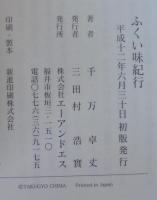 ふくい味紀行
平成十二年六月三十日 初版発行
著者 千万卓丈
発行者 三田村浩實
発行所 株式会社エーアンドエス
福井市板垣三-一五一〇
電話〇七七六(三六)九一七五
印刷・製本 新進印刷株式会社
©TAKUGYO CHIMA Printed in Japan